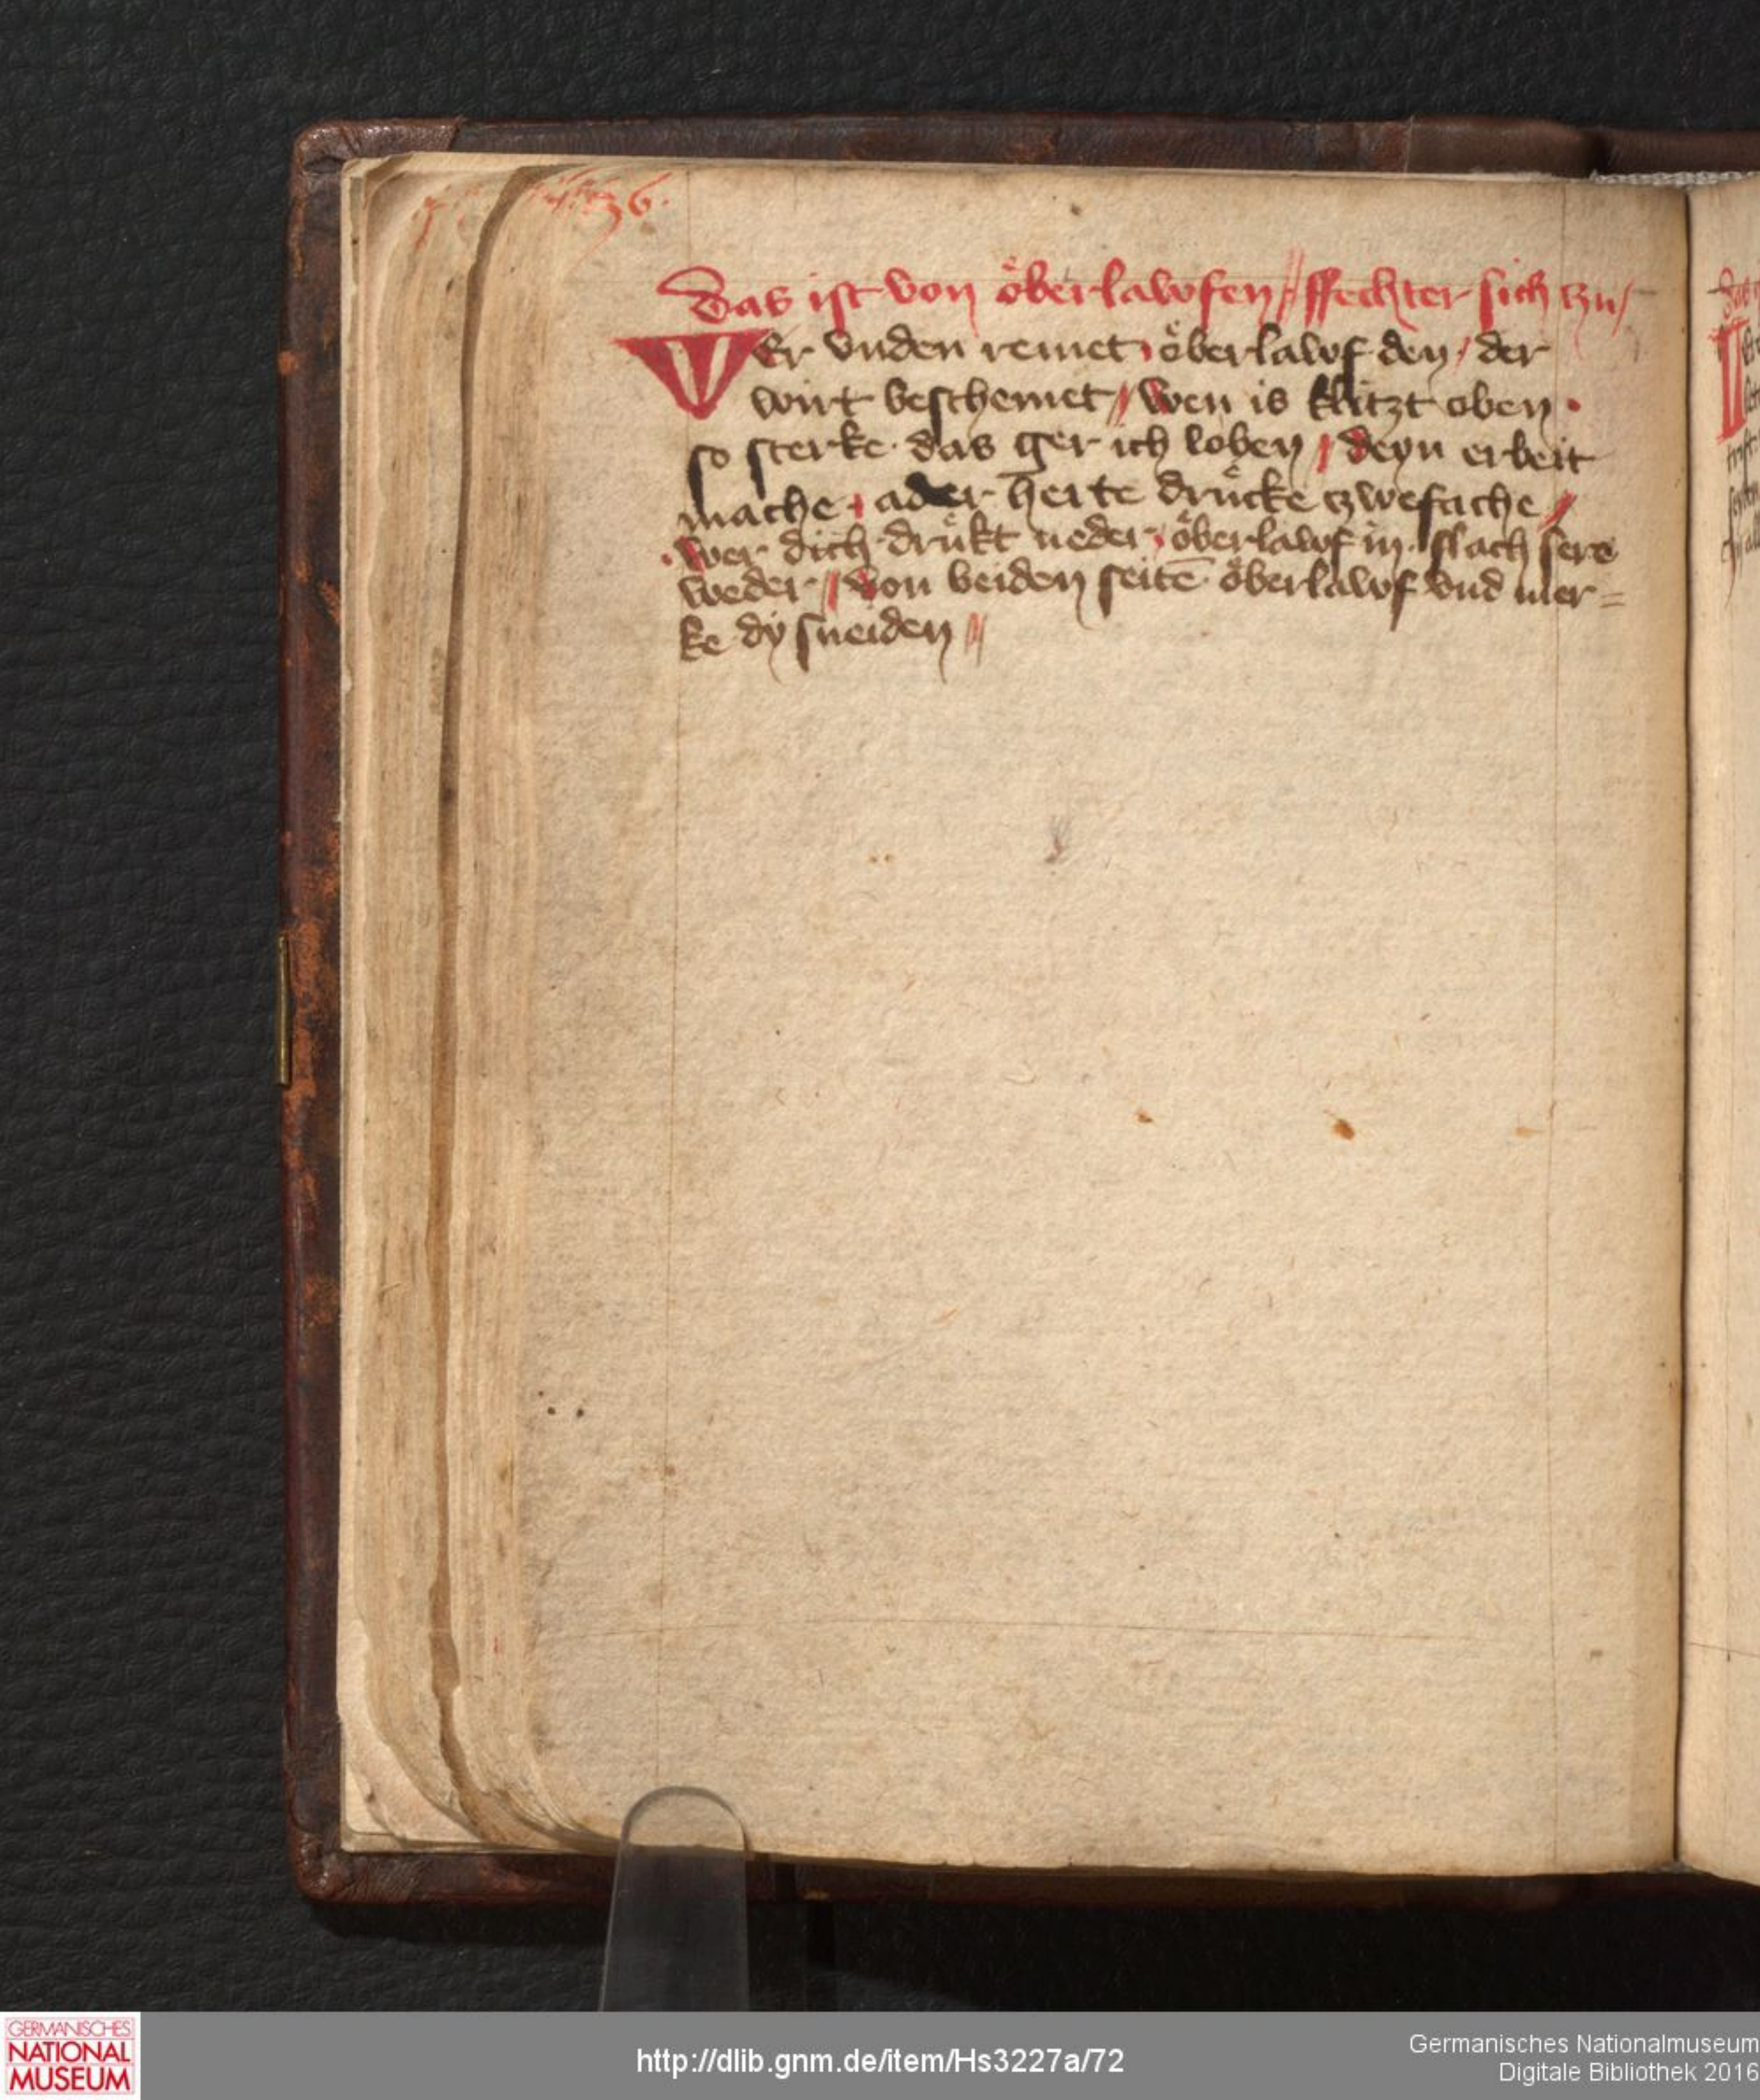 36.
Das ist von öberlawfen // ffechter sich czu /
Wer vnden remet / öberlawf den / der
wirt beschemet // Wen is klitzt oben .
so sterke · das ger ich loben / deyn erbeit
mache / ader herte drücke czwefache /
· Wer dich drükt neder / öberlawf in · slach sere
weder // Von beiden seitē öberlawf vnd mer=
ke dy sneiden //
GERMANISCHES
NATIONAL
MUSEUM
http://dlib.gnm.de/item/Hs3227a/72
Germanisches Nationalmuseum
Digitale Bibliothek 2016